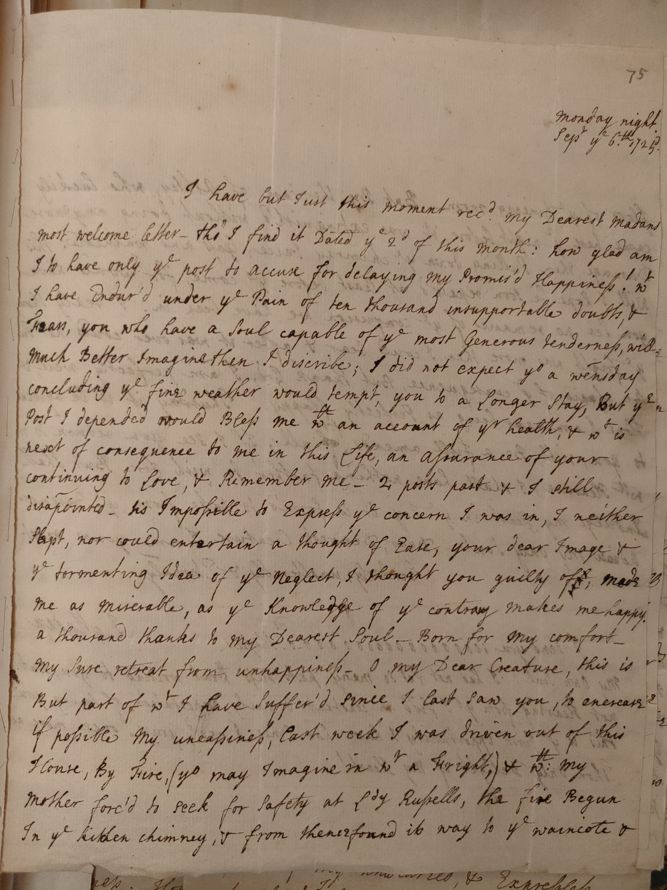 75
Monday night.
Sepr ye 6.th 1725.
I have but Just this moment recd my Dearest madams
most welcome letter - tho' I find it Dated ye 2d of this month: how glad am
I to have only ye post to accuse for delaying my Promis'd Happiness! wt
I have Endur'd under ye Pain of ten thousand insupportable doubts &
Fears, you who have a Soul capable of ye most Generous tenderness, will
Much Better Imagine then I discribe; I did not expect yo a wensday
concluding ye fine weather would tempt you to a Longer Stay, But ye
Post I depended would Bless me wth an account of yr health, & wt is
next of consequence to me in this Life, an assurance of your
continuing to Love, & Remember me - 2 posts past & I still
disapointed - tis Impossible to Express ye concern I was in, I neither
Slept, nor could entertain a thought of Ease, your dear Image &
ye tormenting Idea of ye Neglect I thought you guilty off, made
me as miserable, as ye Knowledge of ye contrary makes me happy.
a thousand thanks to my Dearest Soul - Born for my comfort -
my Sure retreat from unhappiness - O my Dear Creature, this is
But part of wt I have Suffer'd Since I Last Saw you, to encrease
if possible my uneassiness, Last week I was driven out of this
House, By Fire, (yo may Imagine in wt a Fright,) & wth: my
Mother forc'd to Seek for Safety at Ldy Russells, the fire Begun
In ye kitchen chimney, & from thence found its way to ye wainscote &